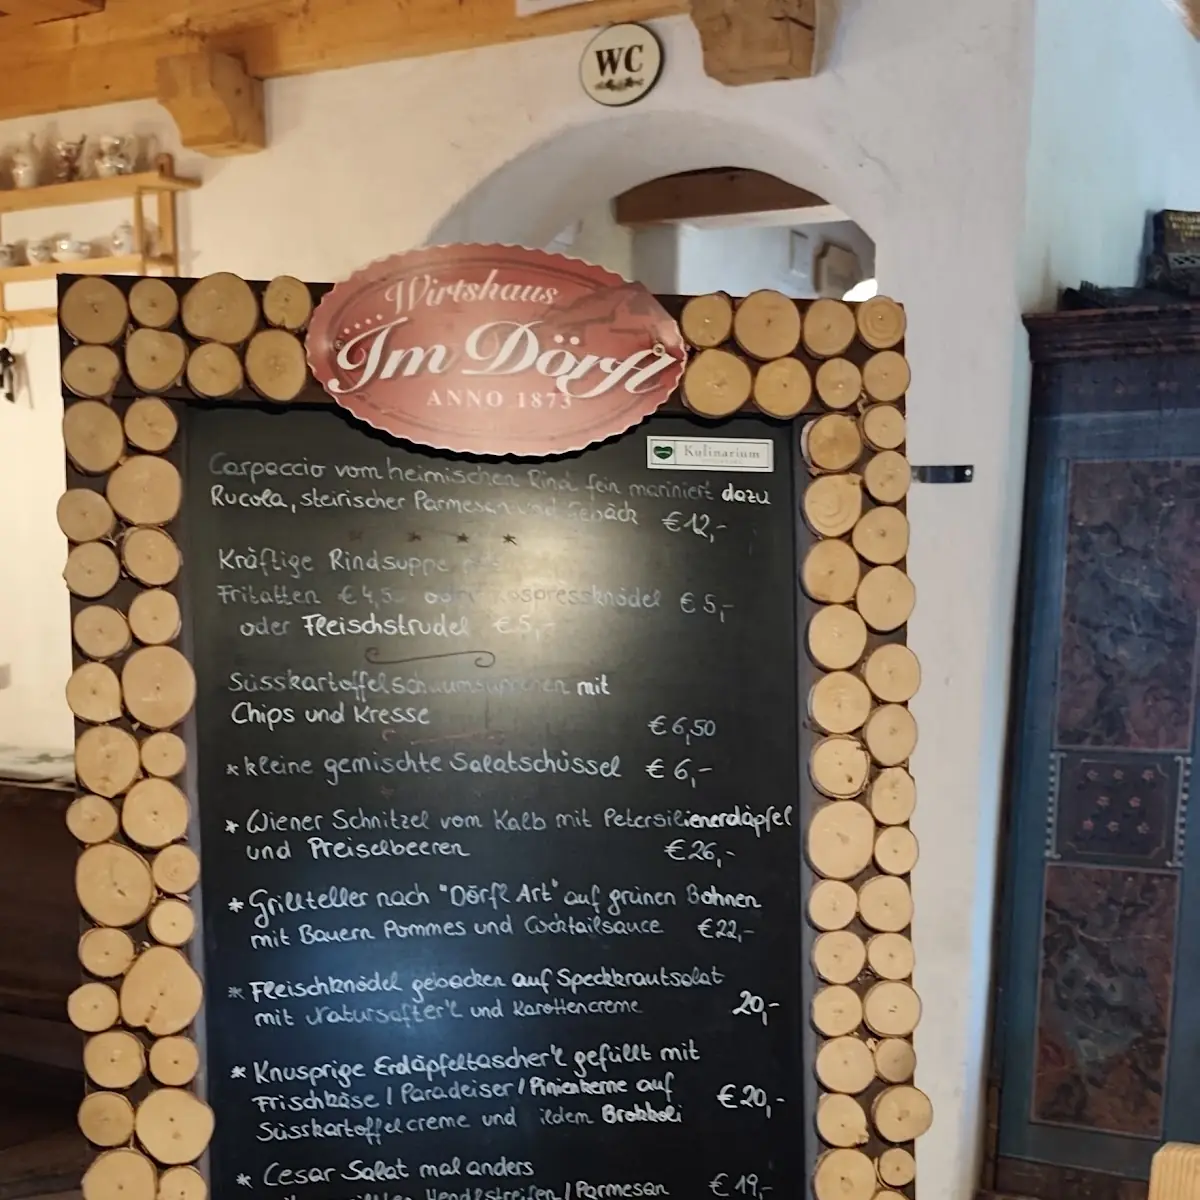 WC
Wirtshaus
Im Dörfl
ANNO 1873
Kulinarium
Carpaccio vom heimischen Rind fein mariniert dazu
Rucola, steirischer Parmesan und Gebäck €12,-
Kräftige Rindsuppe
Fritatten €4,5 oder Kaspressknödel €5,-
oder Fleischstrudel €5,-
Süsskartoffelschaumsüppchen mit
Chips und Kresse
€6,50
*kleine gemischte Salatschüssel €6,-
* Wiener Schnitzel vom Kalb mit Petersilienerdäpfel
und Preiselbeeren €26,-
* Grillteller nach "Dörfl Art" auf grünen Bohnen
mit Bauern Pommes und Cocktailsauce €22,-
* Fleischknödel gebacken auf Speckkrautsalat
mit Natursafter'l und Karottencreme 20,-
* Knusprige Erdäpfeltascher'l gefüllt mit
Frischkäse / Paradeiser / Pinienkerne auf €20,-
Süsskartoffelcreme und ildem Brokkoli
* Cesar Salat mal anders
Hendlstreifen / Parmesan €19,-